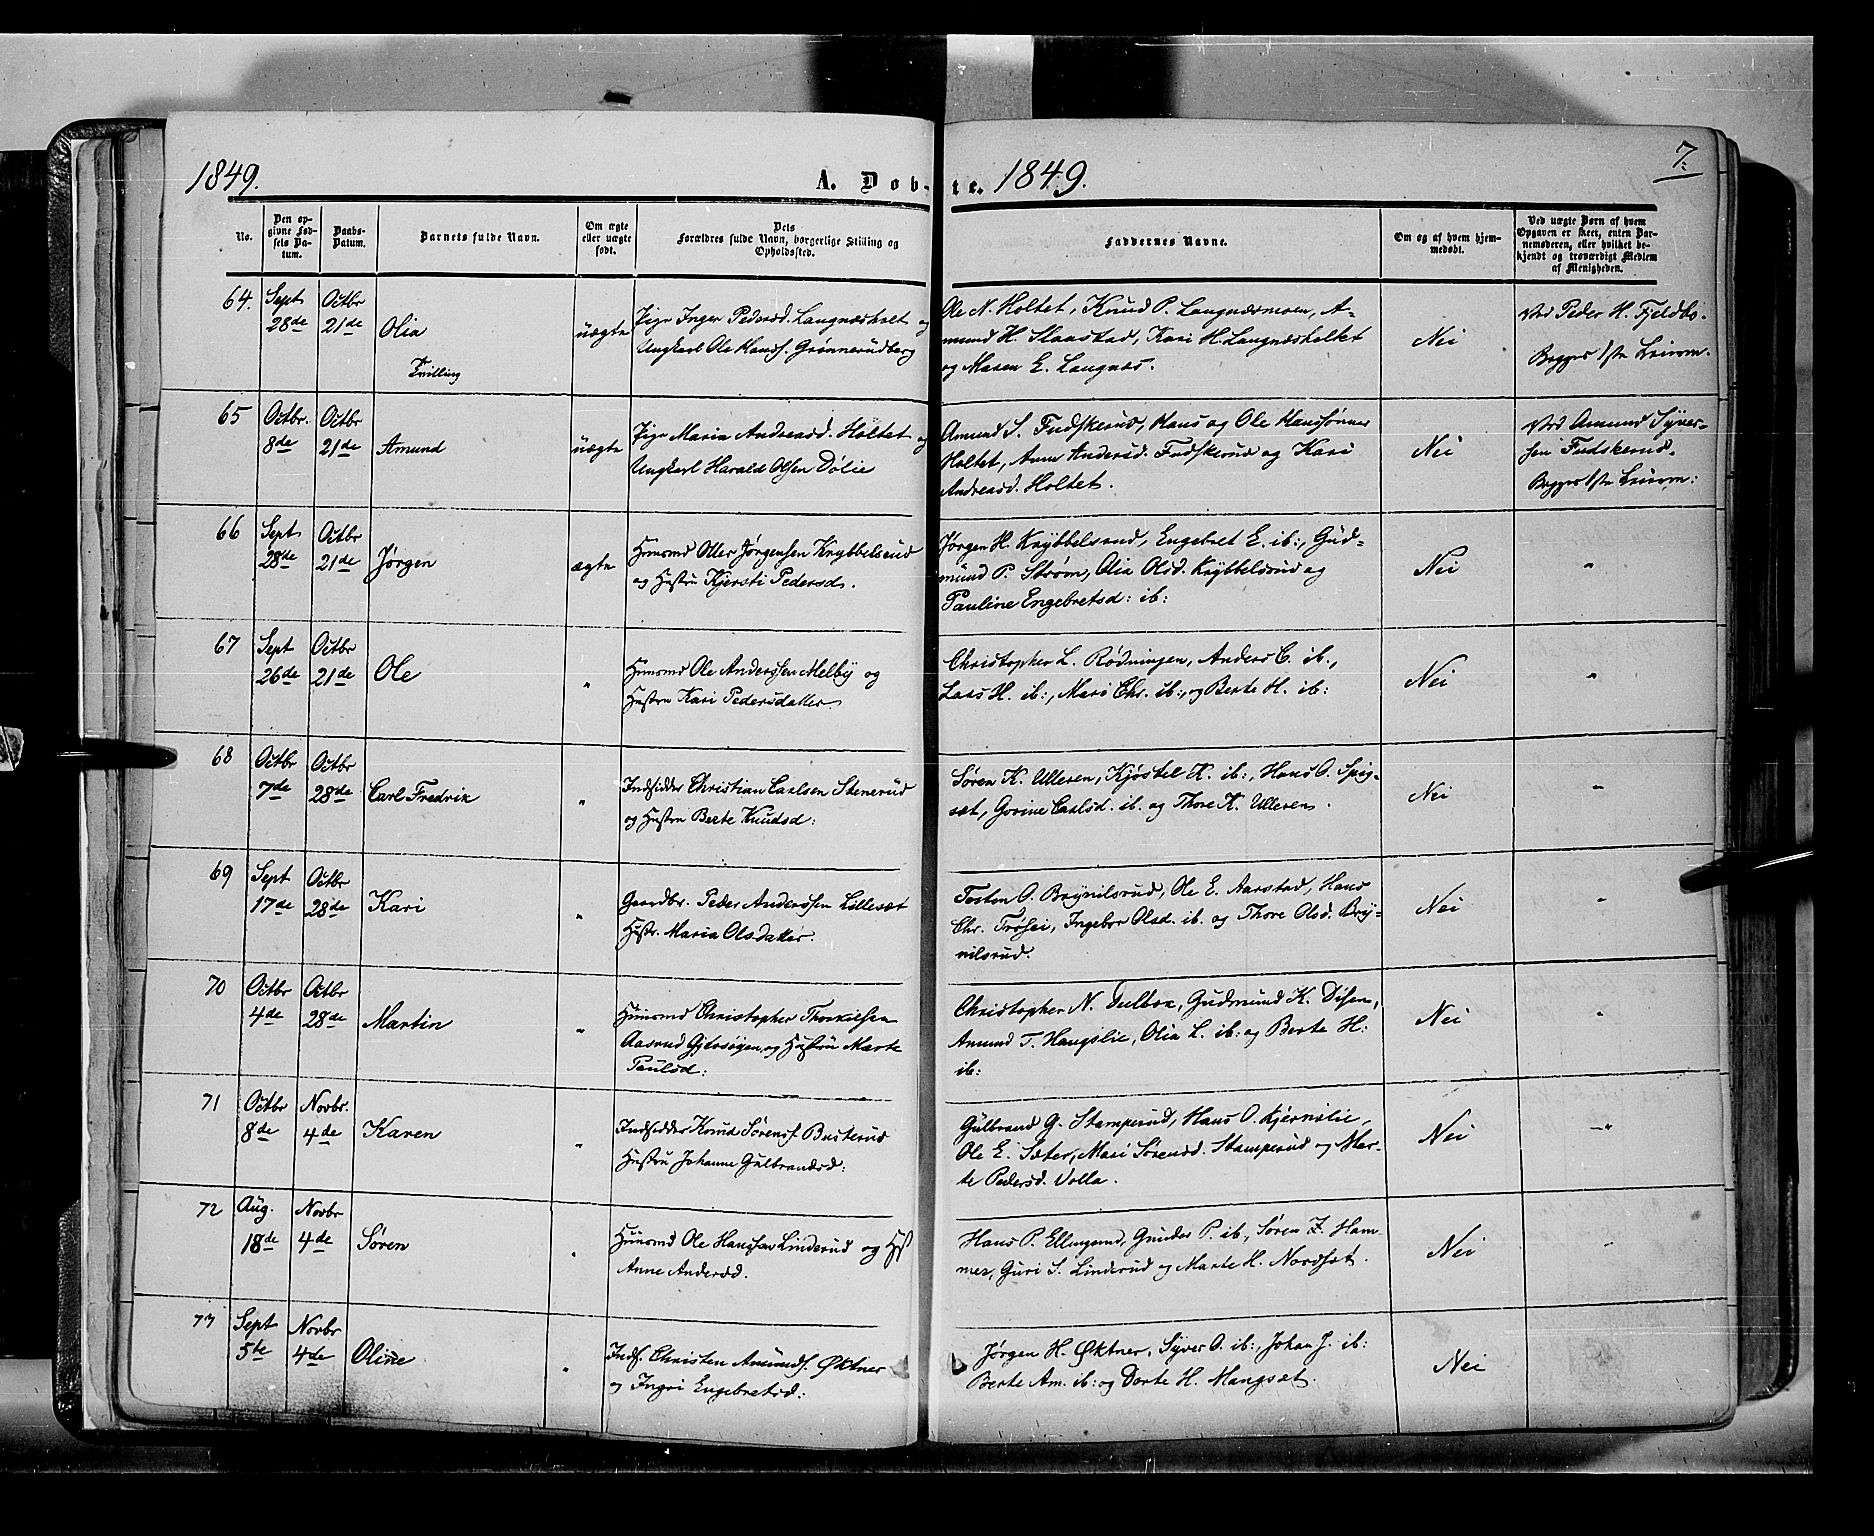 1849.
A. Døb-
te. 1849.
7.
No.
Den op-
givne Fød-
sels Da-
tum.
Daabs-
Datum.
Barnets fulde Navn.
Om ægte
eller uægte
født.
Dets
Forældres fulde Navn, borgerlige Stilling og
Opholdssted.
Faddernes Navne.
Om og af hvem hjem-
medøbt.
Ved uægte Børn af hvem
Opgaven er skeet, enten Bar-
nemoderen, eller hvilket be-
kjendt og troværdigt Medlem
af Menigheden.
64.
Sept
28de
Octbr
21de
Olia
Tvilling
uægte
Pige Inger Pedersd. Langnæsholt og
Ungkarl Ole Hanss. Grønnerudberg
Ole N. Holtet, Knud P. Langnæsmoen, A-
mund H. Slaastad, Kari H. Langnæsholtet
og Maren E. Langnæs.
Nei
Ved Peder H. Fjeldbo.
Begges 1ste Leierm.
65
Octbr.
8de
Octbr
21de
Amund
uægte
Pige Maria Andreasd. Holtet og
Ungkarl Harald Olsen Dølie
Amund S. Fudskerud, Hans og Ole Hanssønner
Holtet, Anne Andersd. Fudskerud og Kari
Andreasd. Holtet.
Nei
Ved Amund Syver-
sen Fudskerud.
Begges 1ste Leierm:
66
Sept
28de
Octbr
21de
Jørgen
ægte
Huusmd Otter Jørgensen Knybbelsrud
og Hustru Kjersti Pedersd.
Jørgen H. Knybbelsrud, Engebret E. ib:, Gud-
mund P. Strøm, Olia Olsd. Knybbelsrud og
Pauline Engebretsd: ib:
Nei
"
67
Sept
26de
Octbr
21de
Ole
"
Huusmd Ole Anderssen Melby og
Hustru Kari Pedersdatter
Christopher L. Rødningen, Anders C. ib.,
Lars H. ib:, Mari Chr. ib:, og Berte H. ib:
Nei
"
68
Octbr
7de
Octbr
28de
Carl Fredrik
"
Indsidder Christian Carlsen Stenerud
og Hustru Berte Knudsd:
Søren K. Ulleren, Kjøstel K. ib:, Hans O. Spig-
set, Govine Carlsd. ib. og Thore K. Ulleren.
Nei
"
69
Sept
17de
Octbr
28de
Kari
"
Gaardbr. Peder Anderssen Lillesæt
Hustr. Maria Olsdatter.
Tosten O. Brynilsrud, Ole E. Aarstad, Hans
Chr. Trøsei, Ingebor Olsd. ib. og Thore Olsd. Bry-
nilsrud.
Nei
"
70
Octbr
4de
Octbr
28de
Martin
"
Huusmd Christopher Thorkielsen
Aasrud Gjersøyen, og Hustru Marte
Paulsd:
Christopher N. Dulbox, Gudmund K. Disen,
Amund T. Haugslie, Olia L. ib: og Berte H:
ib:
Nei
"
71
Octbr
8de
Novbr.
4de
Karen
"
Indsidder Knud Sørens. Busterud
Hustru Johanne Gulbrandsd:
Gulbrand G. Stamperud, Hans O. Kjernslie,
Ole E. Sæter, Mari Sørensd. Stamperud og Mar-
te Pedersd. Volla.
Nei
"
72
Aug.
18de
Novbr
4de
Søren
"
Huusmd Ole Hanssen Linderud og Hst
Anne Andersd.
Hans P. Ellingsrud, Gunder P. ib., Søren Z. Ham-
mer, Guri S. Linderud og Marte H. Nordset.
Nei
"
73
Sept
5te
Novbr
4de
Oline
"
Inds. Christen Amunds. Øktner
og Ingri Engebretsd:
Jørgen H. Øktner, Syver O. ib:, Johan J. ib:
Berte Am. ib: og Dorte H. Mangset.
Nei